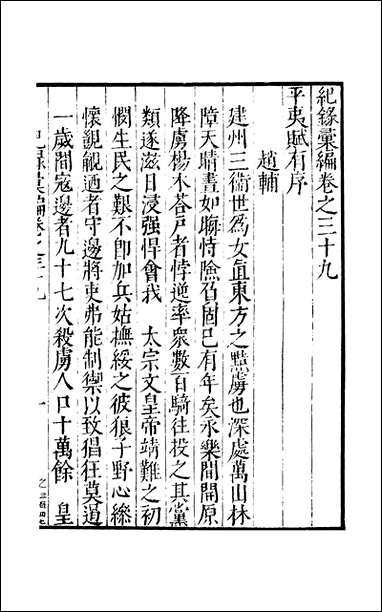 紀錄彙編卷之三十九
平夷賦有序
趙輔
建州三衞世為女直東方之黠虜也深處萬山林
障天晴晝如晦恃險負固已有年矣永樂間開原
降虜楊木荅戶者悖逆率衆數百騎往投之其黨
類遂滋日浸强悍會我　太宗文皇帝靖難之初
憫生民之艱不卽加兵姑撫綏之彼狠子野心絛
懷覬覦迺者守邊將吏弗能制禦以致猖狂莫道
一歲間寇邊者九十七次殺虜人口十萬餘　皇
一